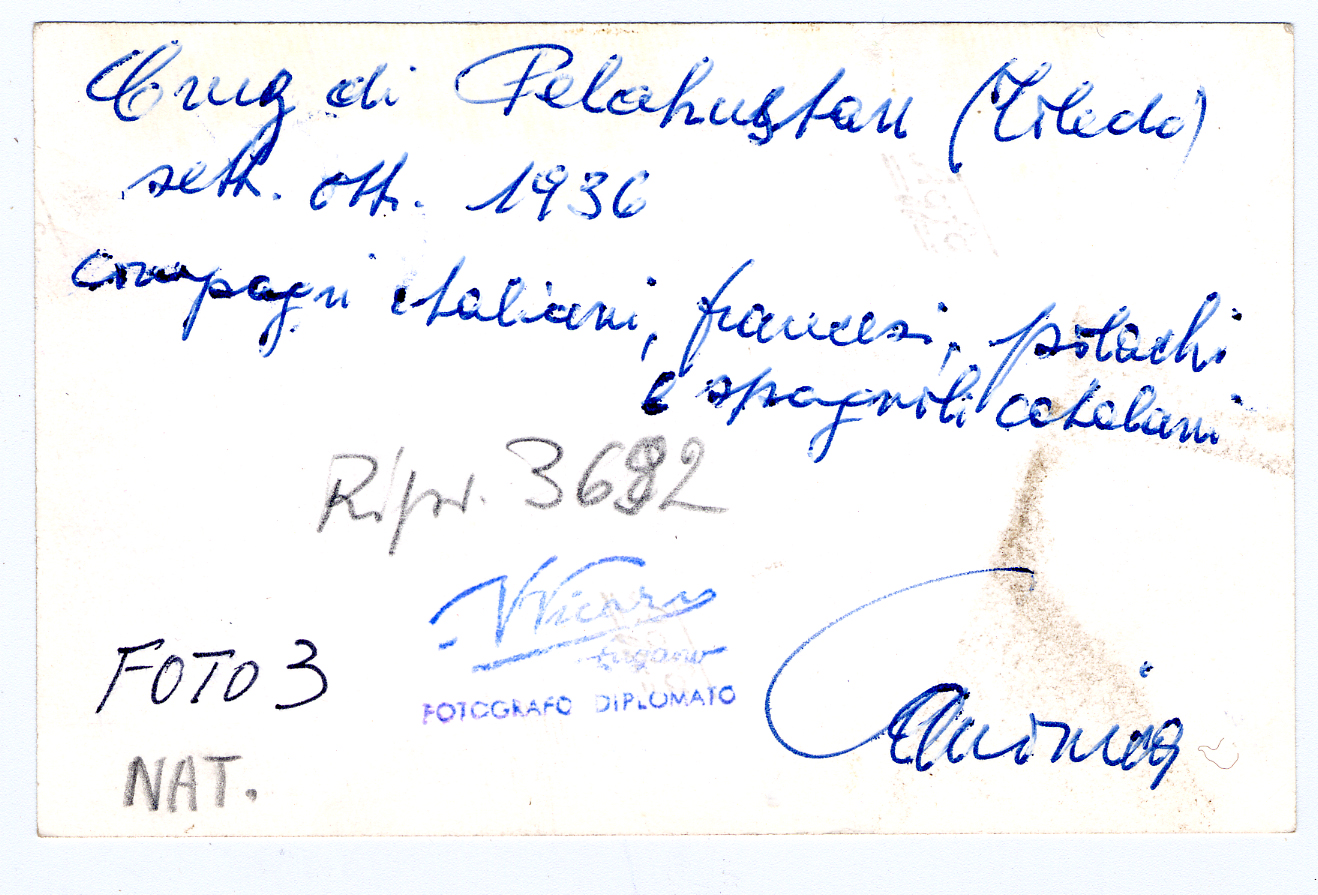 Cruz di Pelahustan (Toledo)
sett. ott. 1936
compagni italiani, francesi, polachi
e spagnoli catalani
Ripr. 3692
Vicari
Lugano
FOTOGRAFO DIPLOMATO
FOTO 3
NAT.